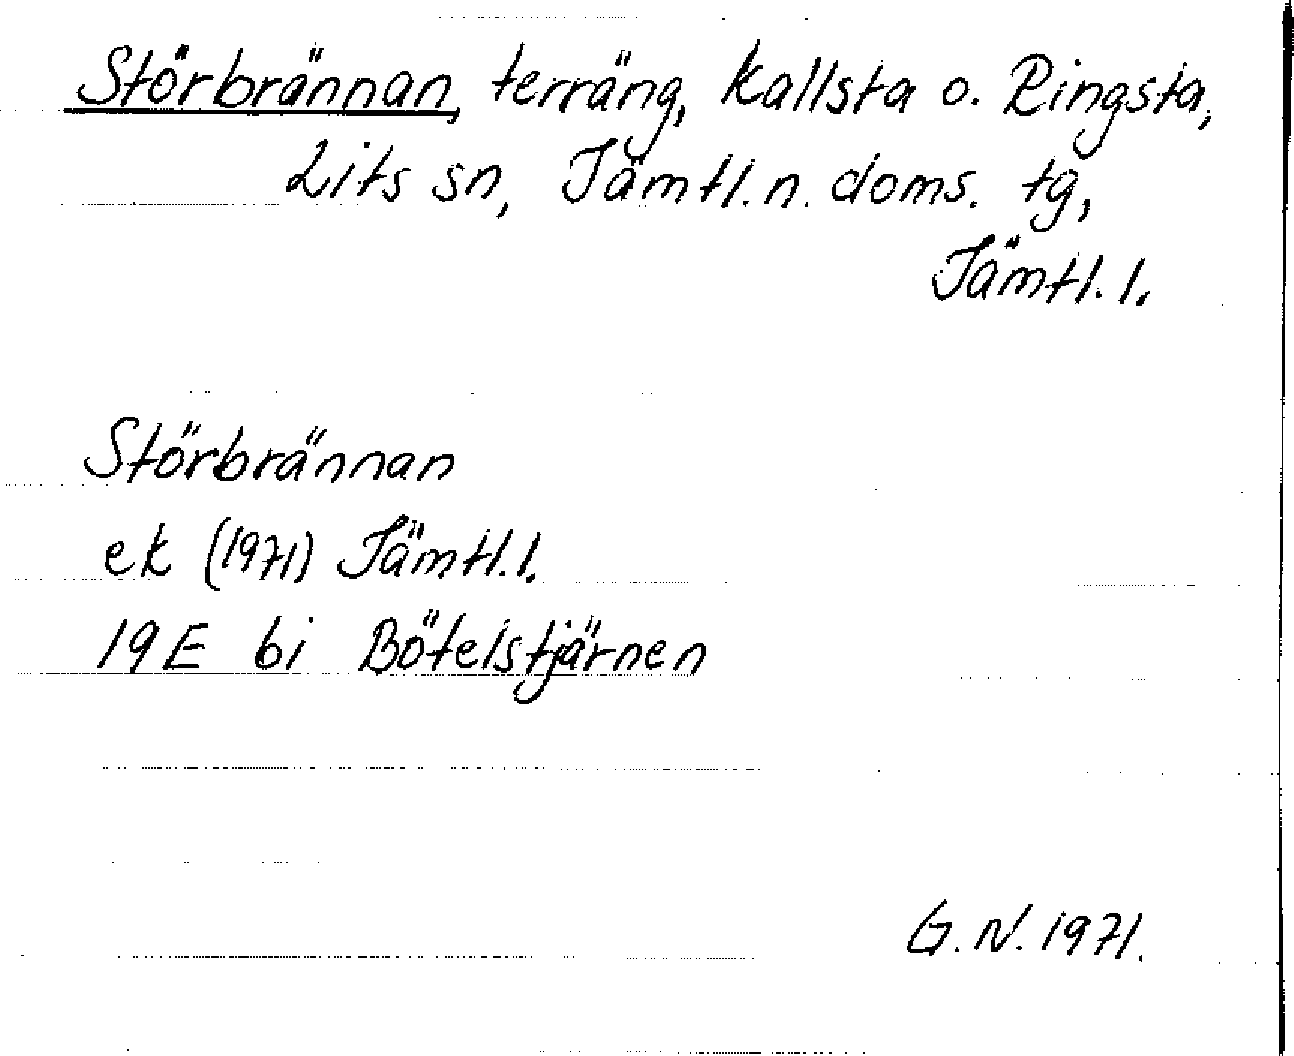 Störbrännan, terräng, Kallsta o. Ringsta,
Lits sn, Jämtl. n. doms. tg,
Jämtl. l.
Störbrännan
ek (1971) Jämtl. l.
19E bi Bötelstjärnen
G. N. 1971.